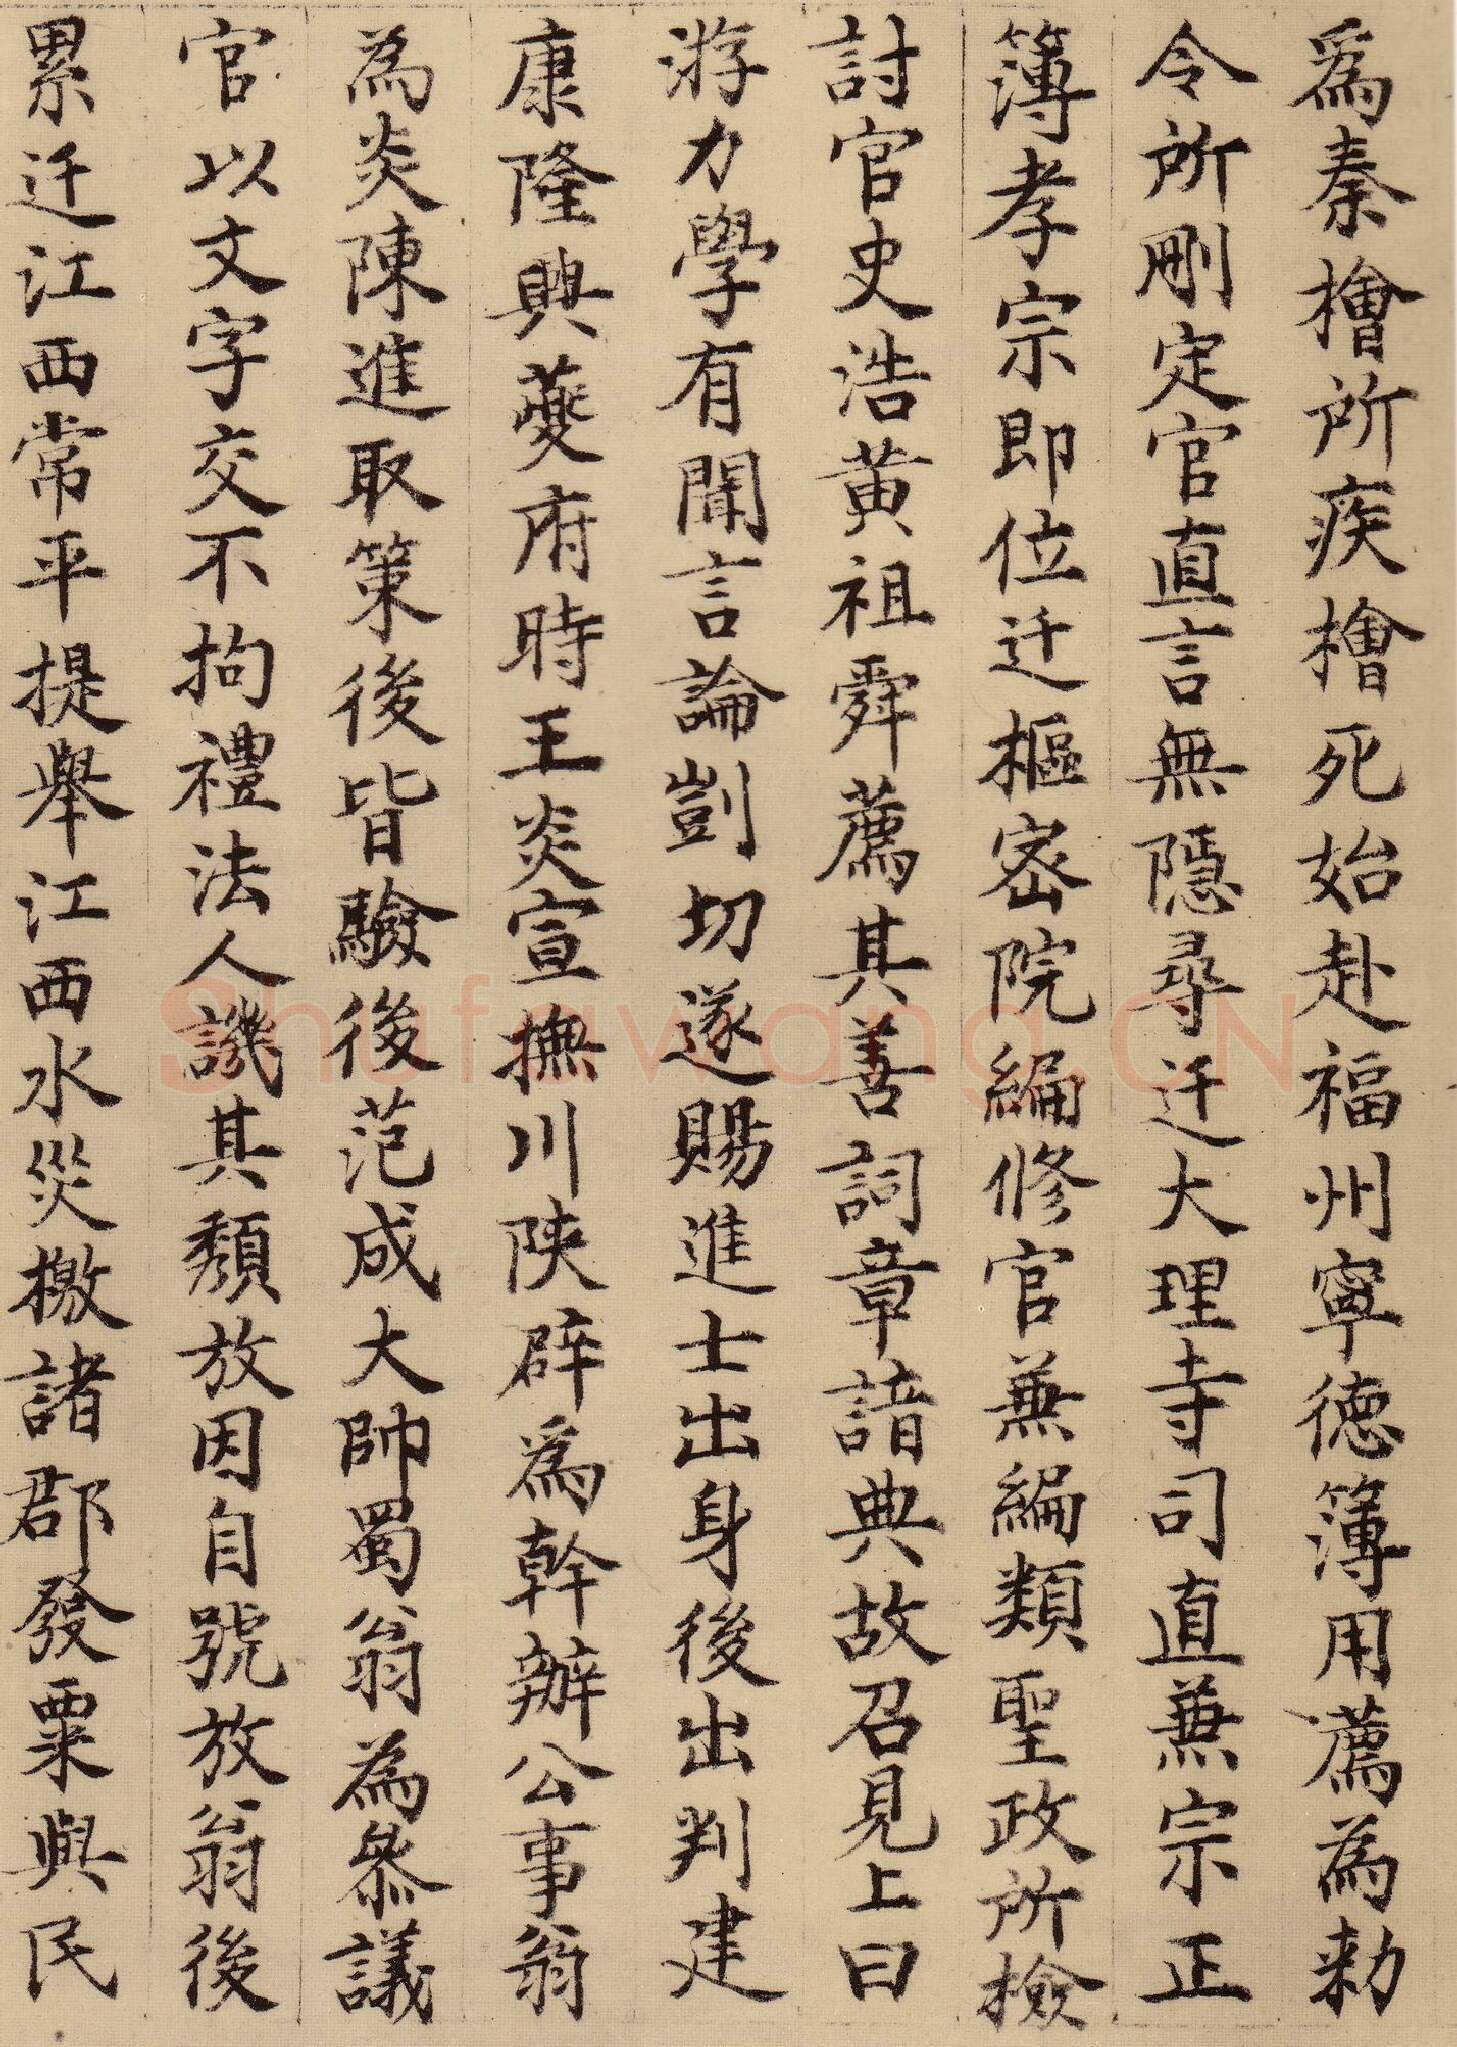 爲秦檜所疾檜死始赴福州寧德簿用薦為勅
令所刪定官直言無隱尋迁大理寺司直兼宗正
簿孝宗即位迁樞密院編修官兼編類聖政所檢
討官史浩黄祖舜薦其善詞章諳典故召見上曰
游力學有聞言論剴切遂賜進士出身後出判建
康隆興夔府時王炎宣撫川陝辟爲幹辦公事翁
為炎陳進取策後皆驗後范成大帥蜀翁為參議
官以文字交不拘禮法人譏其頹放因自號放翁後
累迁江西常平提舉江西水災檄諸郡發粟與民
Shufawang.CN